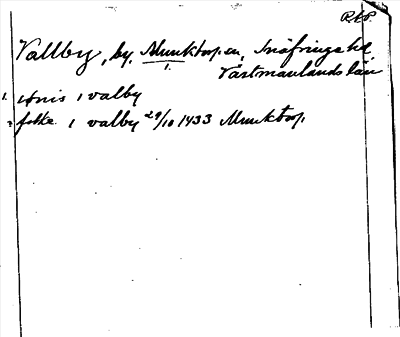 RAP.
Vallby, by, Munktorp sn, Snäfringe hd
1.
Västmanlands län
1. Anis i valby
2 folke i valby 29/10 1433 Munktorp